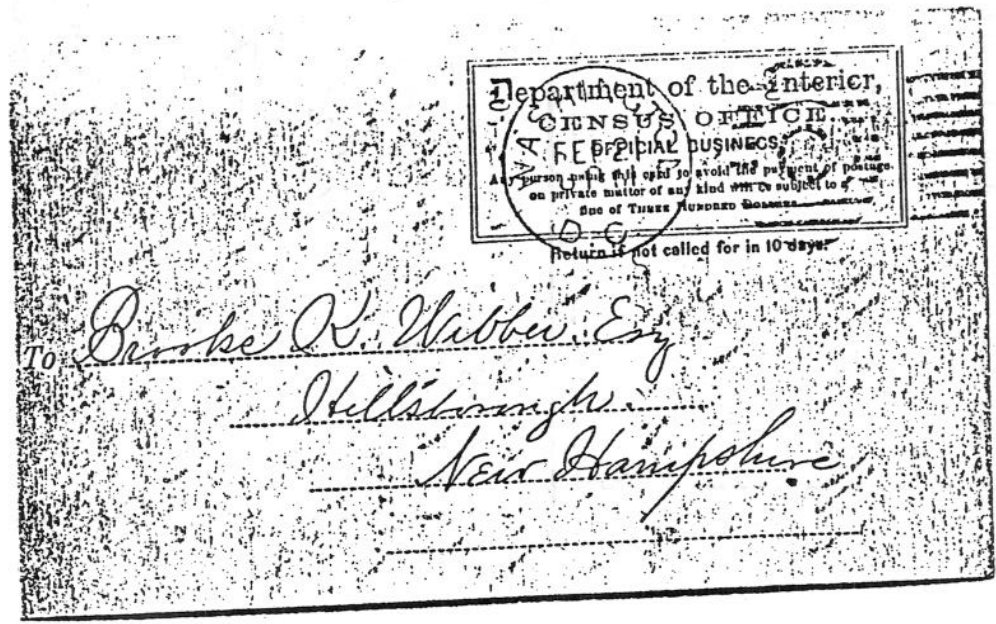 Department of the Interior,
CENSUS OFFICE.
OFFICIAL BUSINESS.
Any person using this card to avoid the payment of postage
on private matter of any kind will be subject to a
fine of THREE HUNDRED DOLLARS
WASHINGTON
FEB 21
D C
Return if not called for in 10 days.
To Brooks K. Webber. Esq
Hillsborough.
New Hampshire